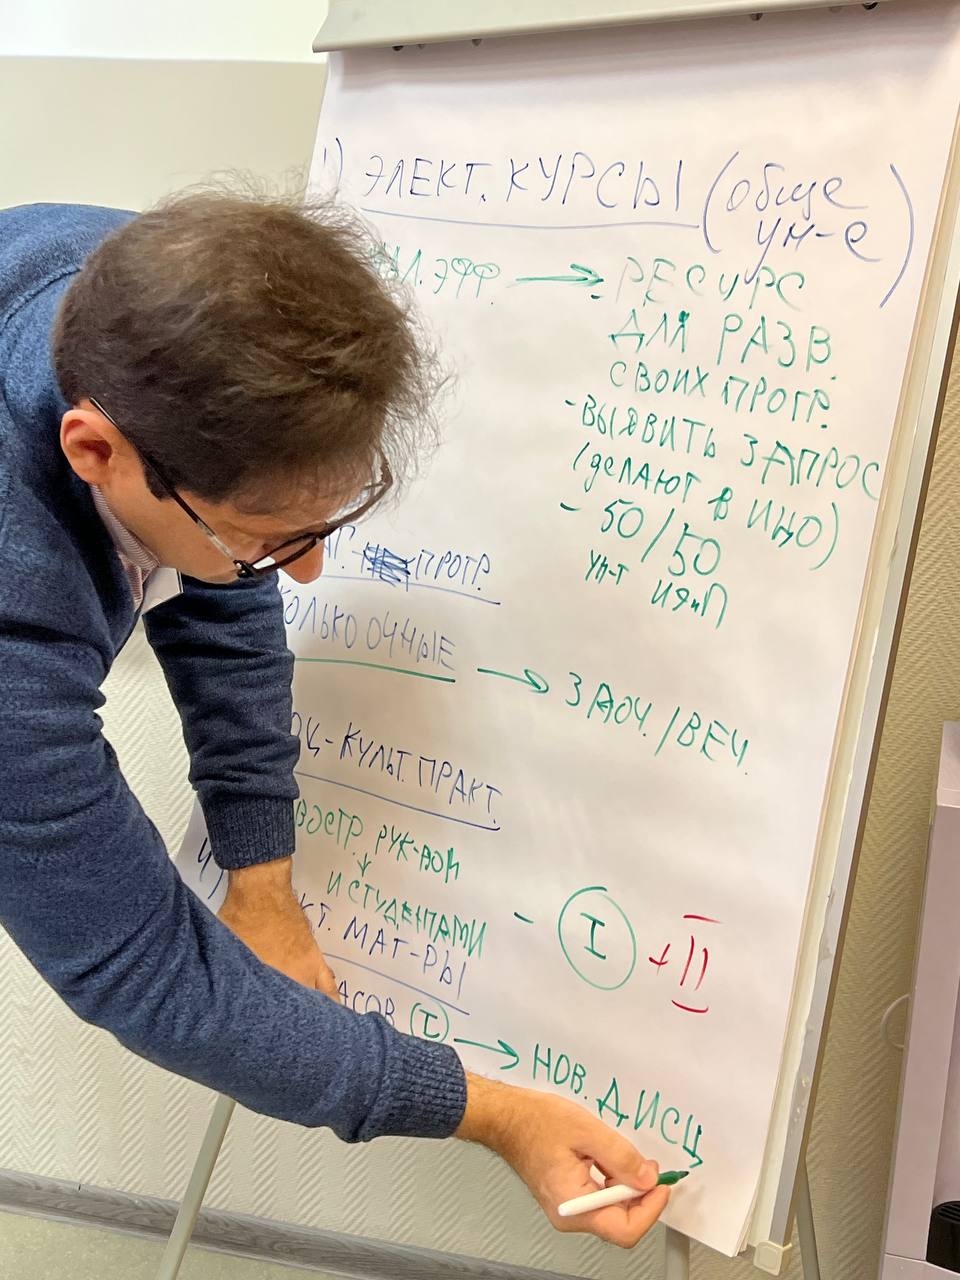 1) ЭЛЕКТ. КУРСЫ (обще
ун-е)
ЭФФ. → РЕСУРС
ДЛЯ РАЗВ.
СВОИХ ПРОГР.
- ВЫЯВИТЬ ЗАПРОС
(делают в ИЦО)
- 50/50
ун-т ИЯиП
ПРОГР.
ОЛЬКО ОЧНЫЕ → ЗАОЧ./ВЕЧ.
ОЦ-КУЛЬТ. ПРАКТ.
ВОСТР. РУК-ВОМ
↓
И СТУДЕНТАМИ - I + II
4) КТ. МАТ-РЫ
АСОВ (I) → НОВ. ДИСЦ